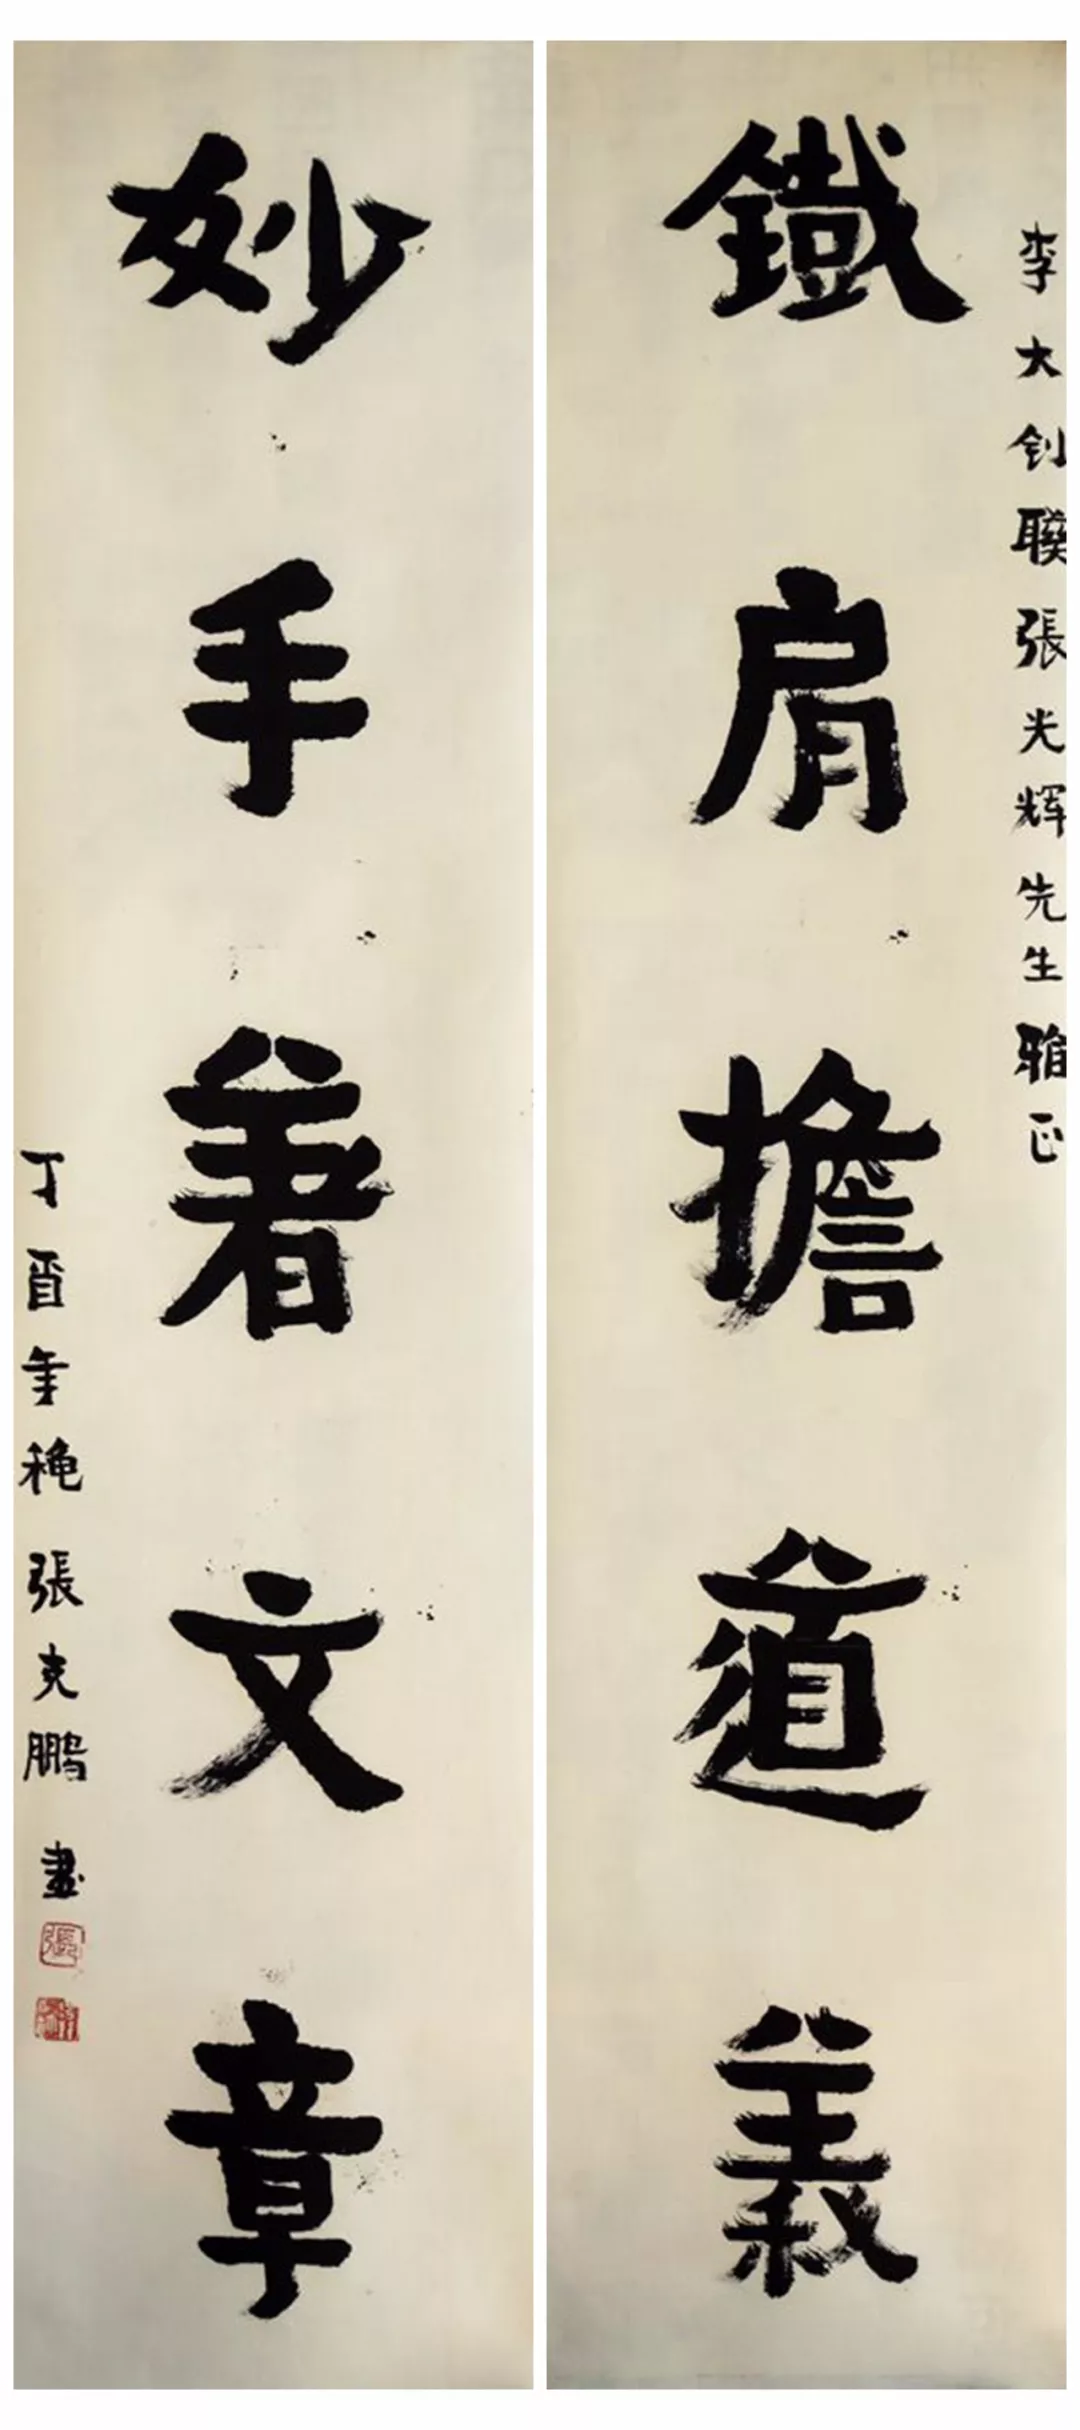 李大钊聯張光辉先生雅正
鐵肩擔道義
妙手著文章
丁酉年穐張克鵬書
張